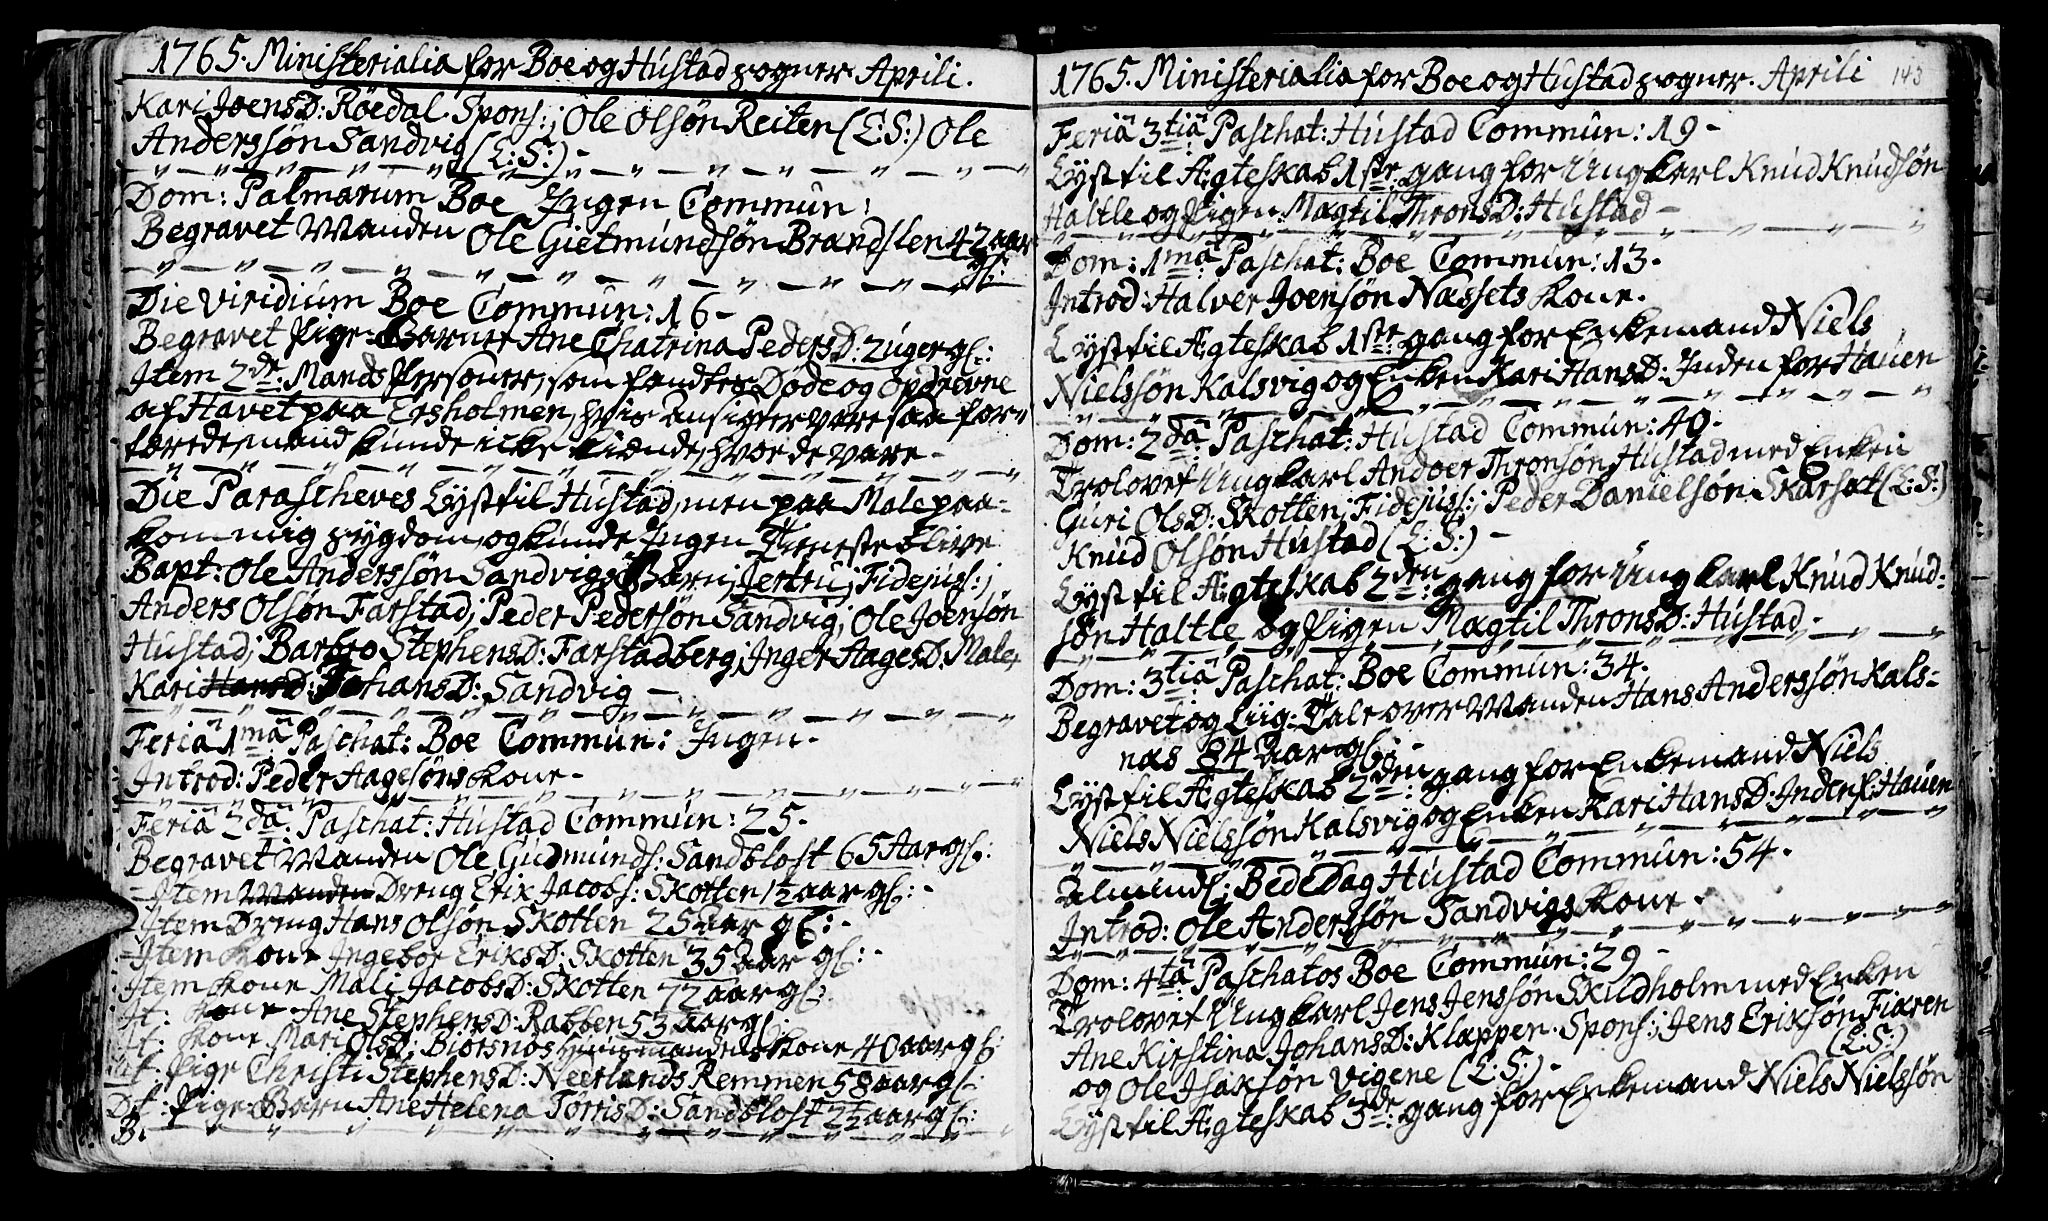 1765. Ministerialia for Boe og Hustad sogner Aprili.
Kari JoensD: Röedal. Spons:; Ole Olsøn Reiten (L:S:) Ole
Anderssøn Sandvig (L:S:) -
Dom: Palmarum Boe Ingen Commun:
Begravet Manden Ole Gietmundsøn Brandslen 42 aar
gl:
Die viridium Boe Commun: 16 -
Begravet Pige-Barnet Ane Chatrina PedersD: 2 uger gl:
Item 2de: Mands Personer, som fandtes Døde og opdrevne
af Havet paa Ersholmen, hvis Ansigter vare saa for-
tærede, mand kunde icke kiende, hvor de vare -
Die Parascheves Lyst til Hustad, men paa Male paa-
kom mig sygdom, og kunde Ingen Tieneste blive
Bapt: Ole Anderssøn Sandvigs Barn; Jertru; Fidejuss:;
Anders Olsøn Farstad; Peder Pedersøn Sandvig; Ole Joensøn
Hustad; Barbro StephensD: Farstadberg; Inger AagesD: Male,
Kari HansD: JohansD: Sandvig -
Feriâ 1mâ Paschat: Boe Commun: Ingen -
Introd: Peder Aagesøns Kone -
Feriâ 2dâ: Paschat: Hustad Commun: 25 -
Begravet Manden Ole Gudmunds: Sandblost 65 Aar gl:
Item Manden Dreng Erix Jacobs: Skotten 1½ aar gl: -
Item Dreng Hans Olsøn Skotten 25 aar gl: -
Item Kone Ingebor EriksD: Skotten 35 aar gl: -
Item Kone Mali JacobsD: Skotten 72 aar gl:
It: Kone Ane StephensD: Rabben 53 aar gl:
It: Kone Mari OlsD: Biørsnos Huusmandens Kone 40 aar gl:
It: Pige Christi StephensD: Neerlands Remmen 58 aar gl:
It: Pige-Barn Ane Helena TorrisD: Sandblost 2½ aar gl:
B.
1765. Ministerialia for Boe og Hustad sogner. Aprili 143
Feriâ 3tiâ Paschat: Hustad Commun: 19 -
Lyst til Ægteskab 1ste: gang for Ung karl Knud Knudsøn
Haltle og Pigen Magtil ThronsD: Hustad -
Dom: 1mâ: Paschat: Boe Commun: 13 -
Introd: Halver Joensøn Næssets Kone -
Lyst til Ægteskab 1ste gang for Enkemand Niels
Nielssøn Kalsvig og Enken Kari HansD: Inden for Hauen
Dom: 2dâ: Paschat: Hustad Commun: 40 -
Trolovet Ung karl Andoer Thronsøn Hustad med Enken
Guri OlsD: Skotten; Fidejuss:; Peder Danielsøn Skarsæt (L:S:)
Knud Olsøn Hustad (L:S:) -
Lyst til Ægteskab 2den gang for Ung karl Knud Knud-
søn Haltle og Pigen Magtil ThronsD: Hustad -
Dom: 3tiâ Paschat: Boe Commun: 34 -
Begravet og Liig-Tale over Manden Hans Anderssøn Kals-
næs 84 aar gl: -
Lyst til Ægteskab 2den: gang for Enkemand Niels
Niels Nielssøn Kalsvig og Enken Kari HansD: Inden f: Hauen
Almindl: BedeDag Hustad Commun: 54 -
Introd: Ole Anderssøn Sandvigs Kone -
Dom: 4tâ: Paschatos Boe Commun: 29 -
Trolovet Ung karl Jens Jenssøn Skildholm med Enken
Ane Kirstina JohansD: Klappen. Spons:; Jens Eriksøn Fiæren
(L:S:)
og Ole Isaksøn Vigene (L:S:) -
Lyst til Ægteskab 3de: gang for Enkemand Niels Nielssøn